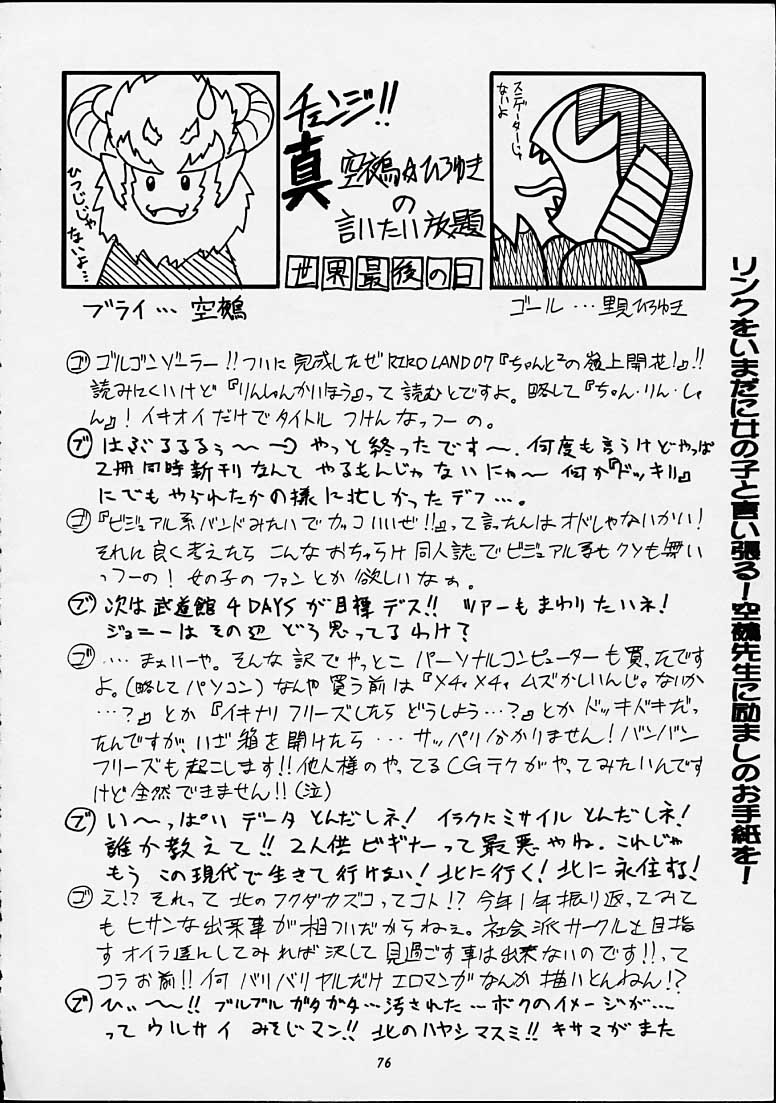 チェンジ!!
真
空鵺☆ひろゆき
の
言いたい放題
世界最後の日
ひつじじゃ
ないよ…
ブライ… 空鵺
ないよ
ゴール …里見ひろゆき
リンクをいまだに女の子と言い張る!空鵺先生に励ましのお手紙を!
ゴ ゴルゴンゾーラー!!ついに完成したぜRIRO LAND 07『ちゃんと²の嶺上開花!』!!
読みにくいけど『りんしゃんかいほう』って読むとですよ。略して『ちゃん・りん・しゃ
ん』! イキオイだけでタイトル つけんなっつーの。
ブ はぶるるるぅ〜〜 やっと終ったです〜.何度も言うけどやっぱ
2冊同時新刊なんて やるもんじゃないにゃ〜 何か『ドッキリ』
にでもやられたかの様に忙しかったデブ…。
ゴ 『ビジュアル系バンドみたいでカッコいいぜ!!』って言ったんはオドレじゃないかい!
それに良く考えたら こんなおちゃらけ同人誌でビジュアル系もクソも無い
っつーの! 女の子のファンとか欲しいなぁ。
ブ 次は武道館4DAYSが目標デス!! ツアーもまわりたいネ!
ジョニーは その辺 どう思ってるわけ?
ゴ …. まぁいーや。そんな訳でやっとこ パーソナルコンピューターも買ったです
よ。(略してパソコン)なんや買う前は『メチャメチャ ムズかしいんじゃないか
…?』とか『イキナリ フリーズしたら どうしよう…?』とか ドッキドキだっ
たんですが、いざ箱を開けたら… サッパリ分かりません! バンバン
フリーズも起こします!!他人様のやってるCGテクがやってみたいんです
けど全然できません!!(泣)
ブ い〜っぱい データ とんだしネ! イラクにミサイル とんだしネ!
誰か教えて!! 2人供 ビギナーって最悪やね.これじゃ
もう この現代で生きて行けない! 北に行く! 北に永住する!
ゴ え!? それって 北のフクダカズコってコト!? 今年1年振り返ってみて
も ヒサンな出来事が相ついだからねぇ。社会派サークルを目指
すオイラ達としてみれば決して見過ごす事は出来ないのです!!って
コラお前!! 何 バリバリヤルだけ エロマンガなんか 描いとんねん!?
ブ ひぃ〜〜!! ブルブルガタガタ…汚された…ボクのイメージが….
って ウルサイ みそじマン!! 北のハヤシマスミ!! キサマがまた
76